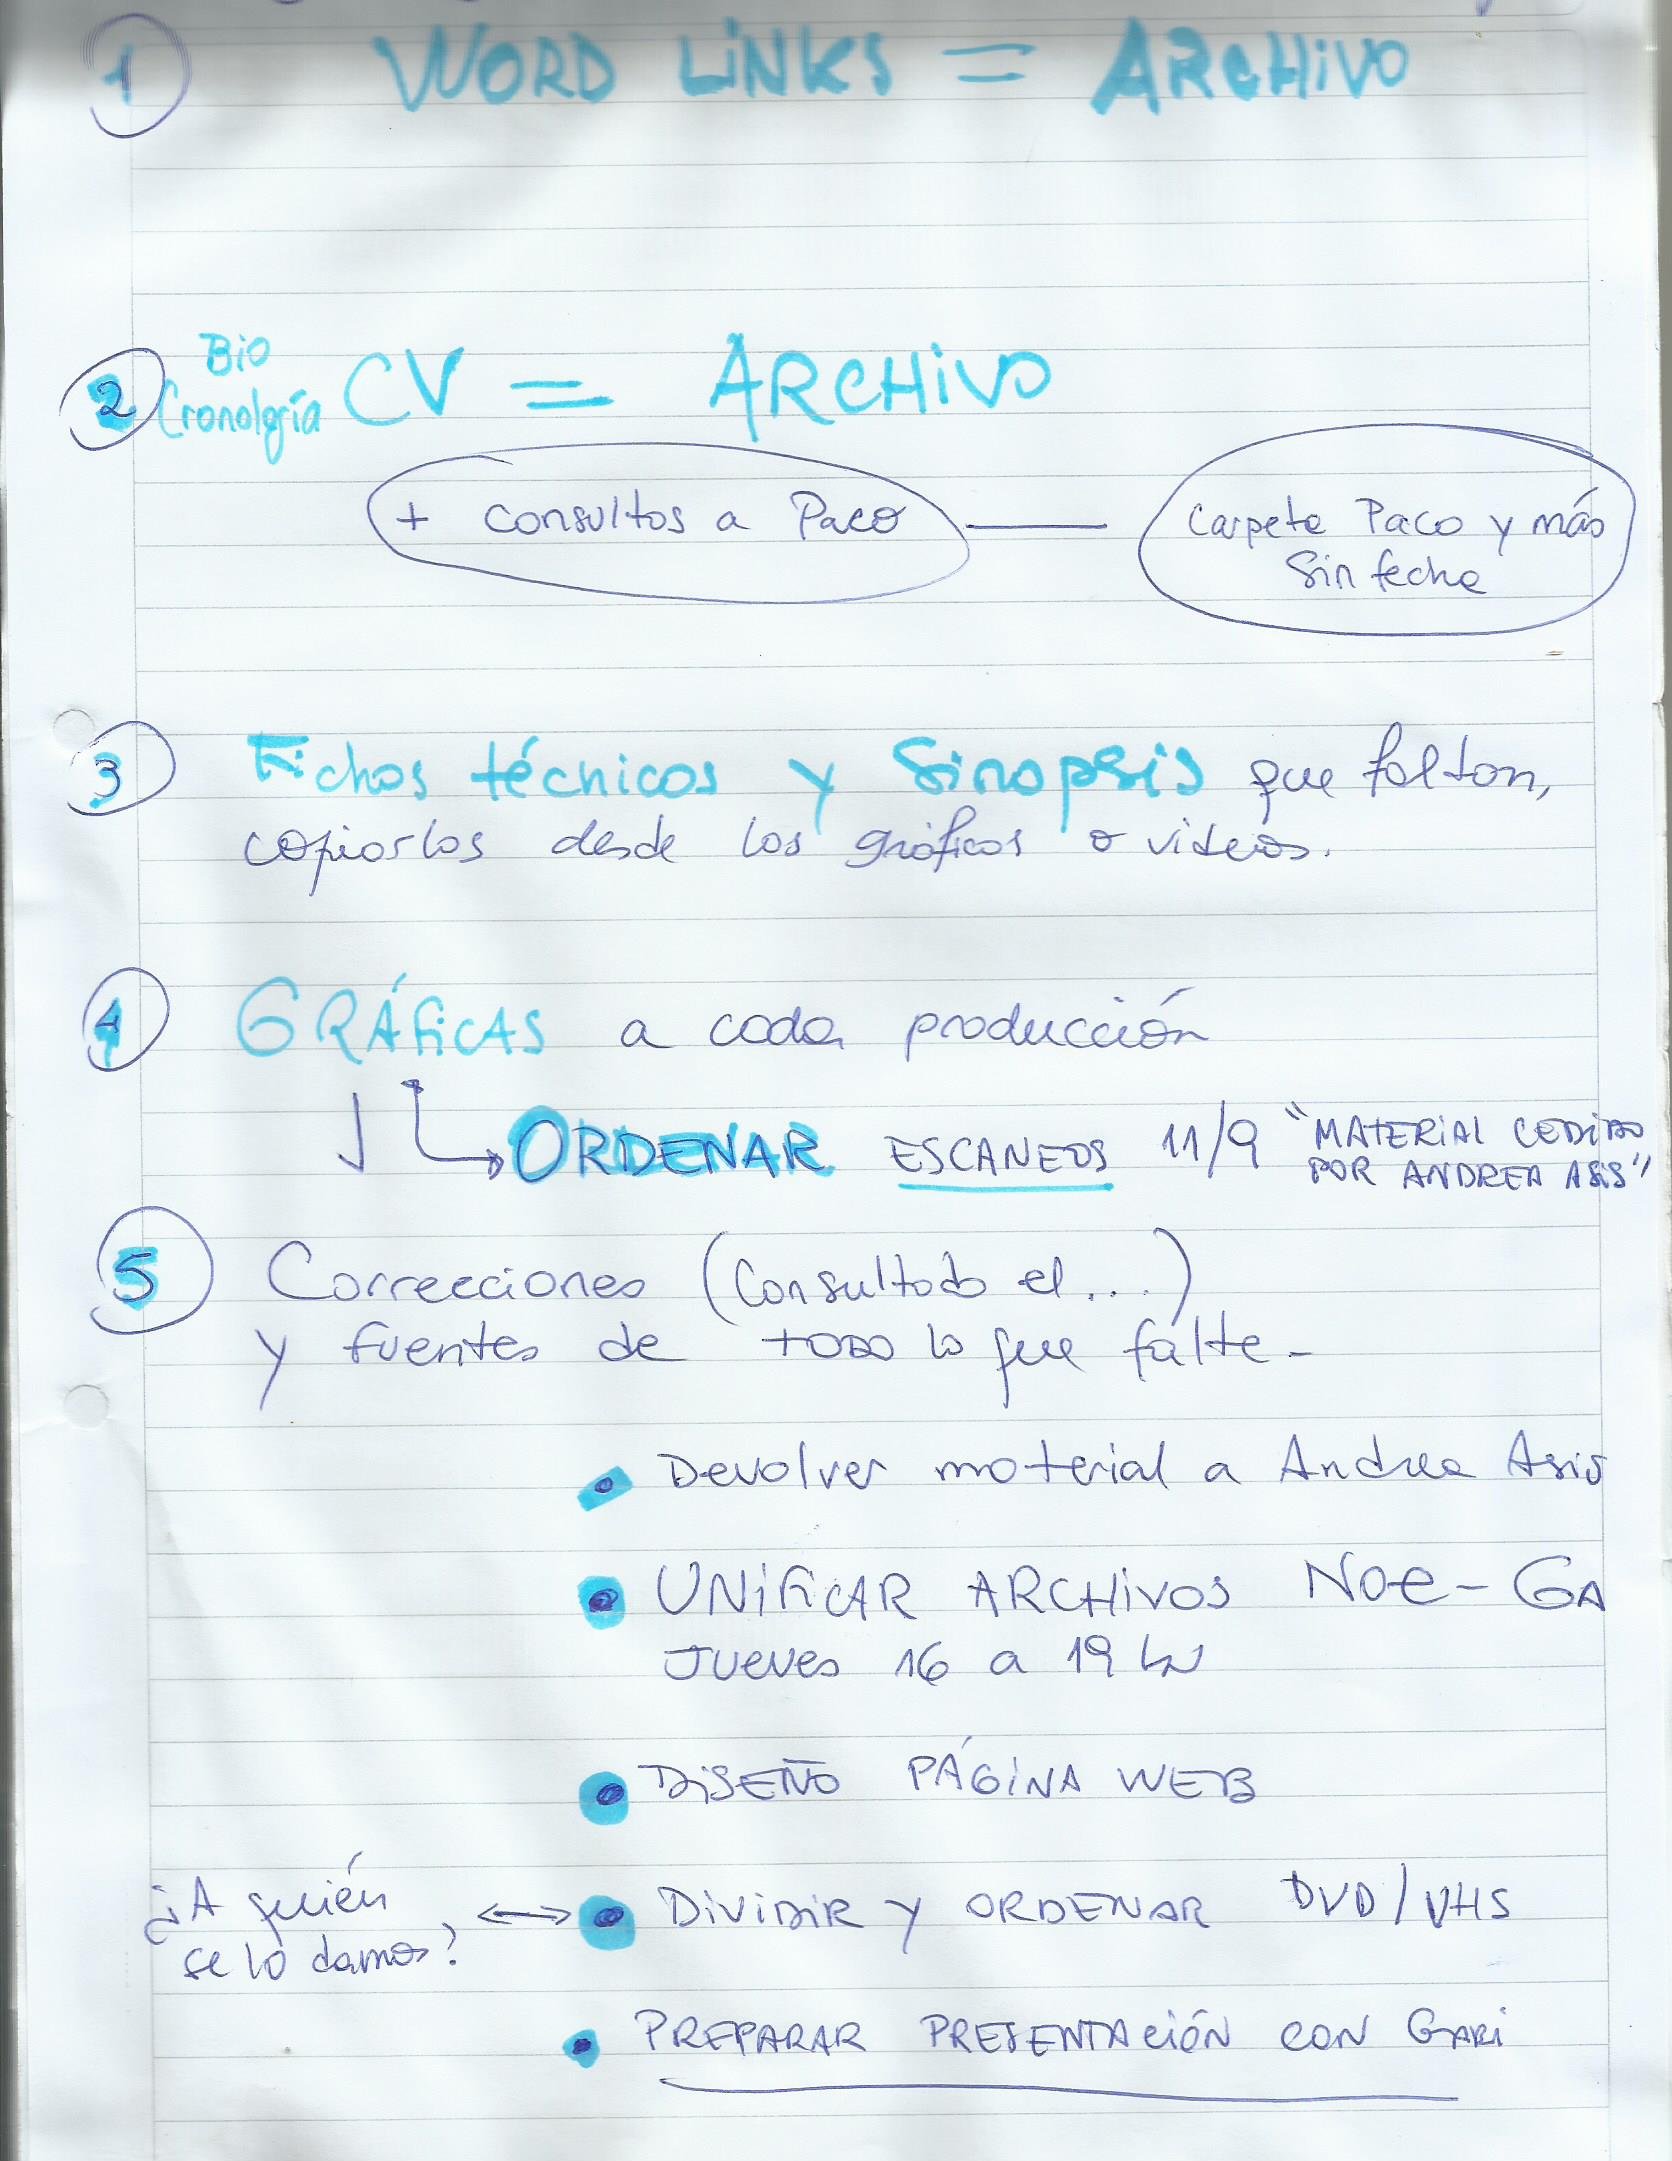 1 WORD LINKS = ARCHIVO
2 Bio Cronología CV = ARCHIVO
+ consultas a Paco — Carpeta Paco y más
Sin fecha
3 Fichas técnicas y Sinopsis que faltan,
copiarlas desde las gráficas o videos.
4 GRÁFICAS a cada producción
ORDENAR ESCANEOS 11/9 "MATERIAL CEDIDO
POR ANDREA ASIS"
5 Correcciones (Consultado el...)
y fuentes de TODO lo que falte-
• Devolver material a Andrea Asis
• UNIFICAR ARCHIVOS NOE-GA
Jueves 16 a 19 hs
• DISEÑO PÁGINA WEB
¿A quién
se lo damos? ↔ • DIVIDIR Y ORDENAR DVD/VHS
• PREPARAR PRESENTACIÓN CON GARI